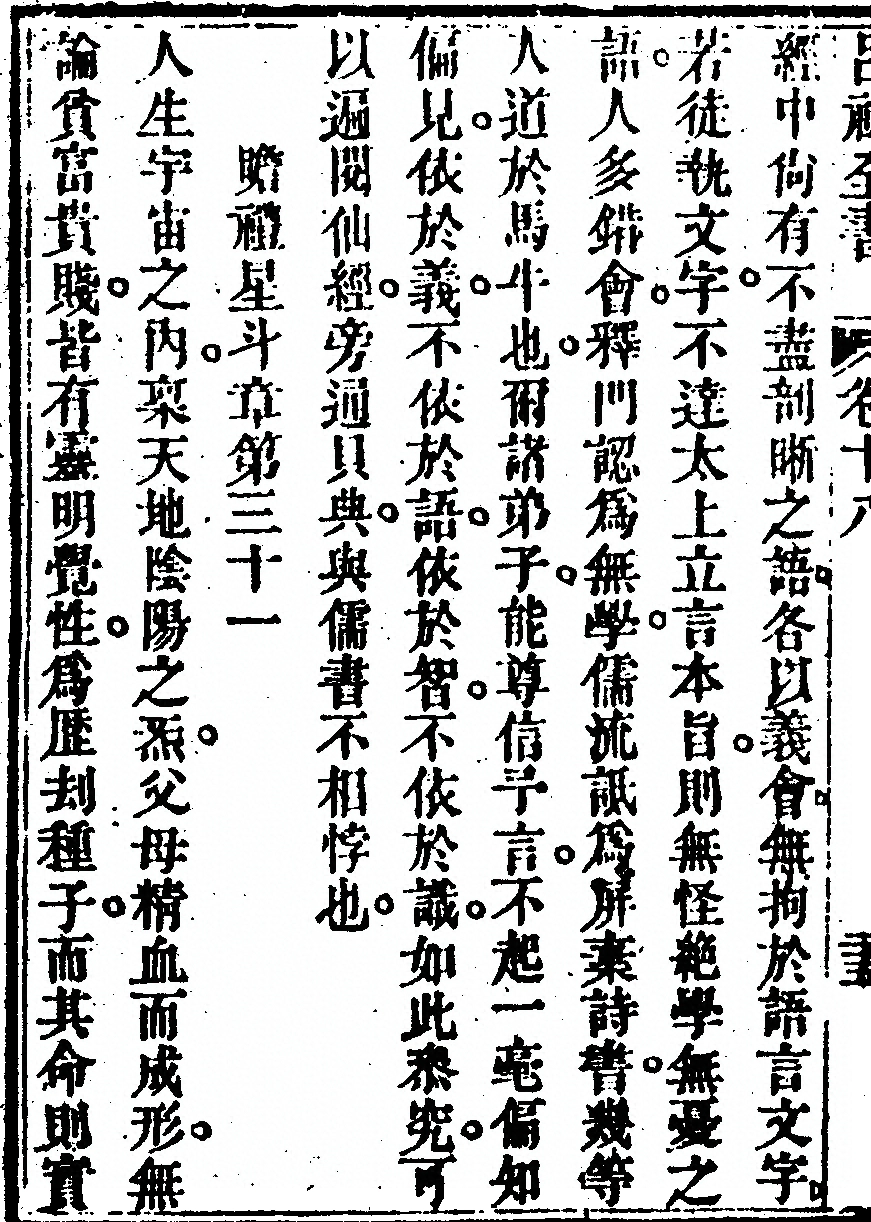 呂祖全書 卷十八
經中尙有不盡剖晣之語各以義會無拘於語言文字
若徒執文字不達太上立言本旨則無怪絶學無憂之
語人多錯會釋門認爲無學儒流詆爲屏棄詩書幾等
人道於馬牛也爾諸弟子能尊信予言不起一毫偏知
偏見依於義不依於語依於智不依於識如此叅究可
以遍閱仙經旁通貝典與儒書不相悖也
瞻禮星斗章第三十一
人生宇宙之內稟天地陰陽之炁父母精血而成形無
論貧富貴賤皆有靈明覺性爲歴刦種子而其命則實